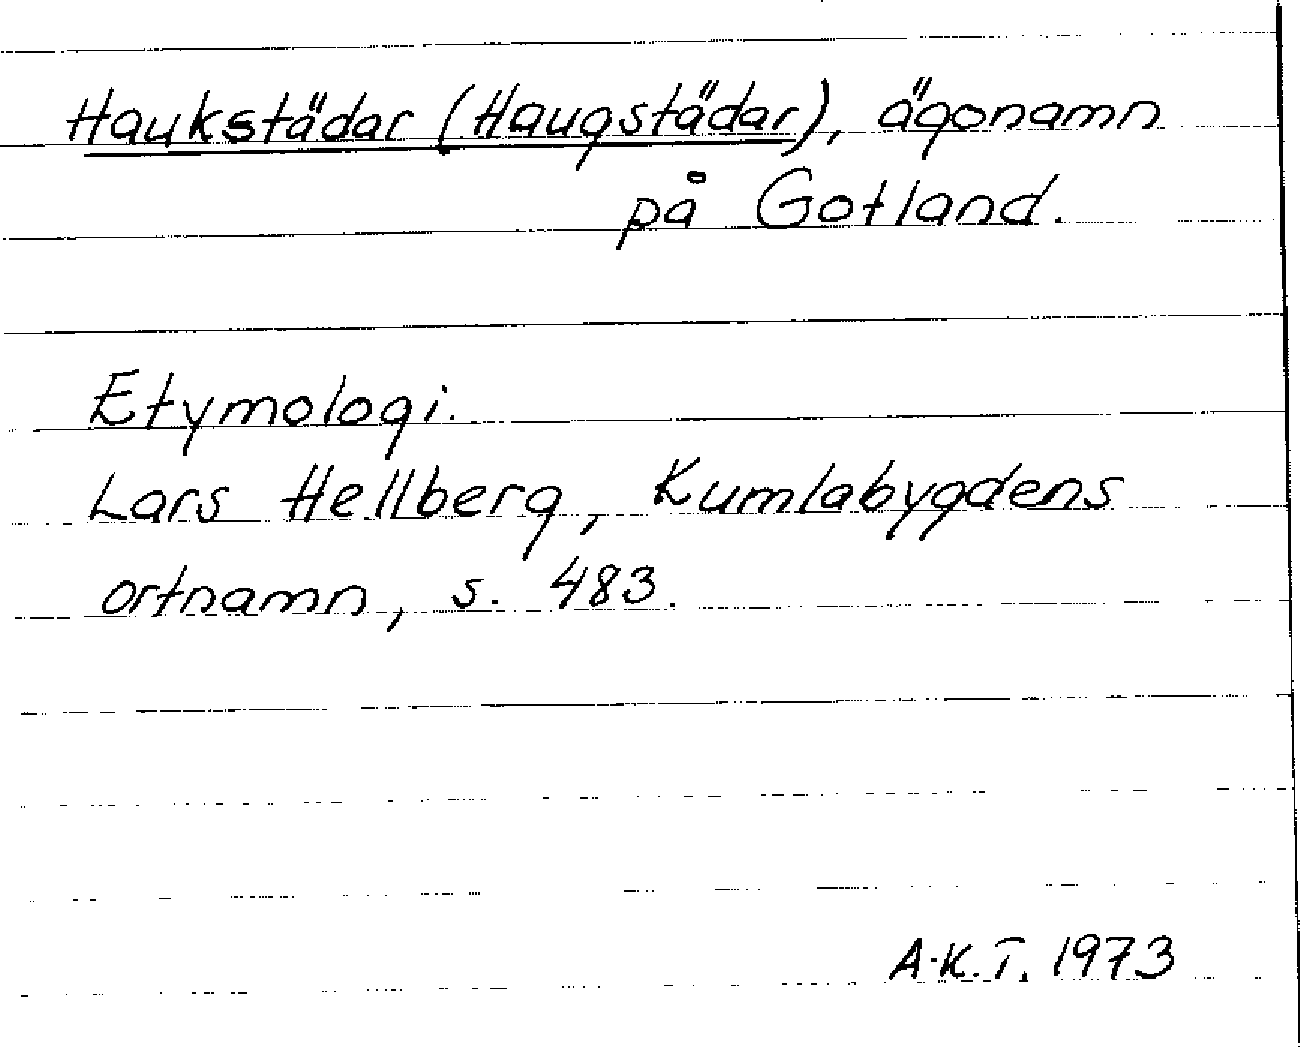 Haukstädar (Haugstädar), ägonamn
på Gotland.
Etymologi.
Lars Hellberg, Kumlabygdens
ortnamn, s. 483.
A.K.T. 1973